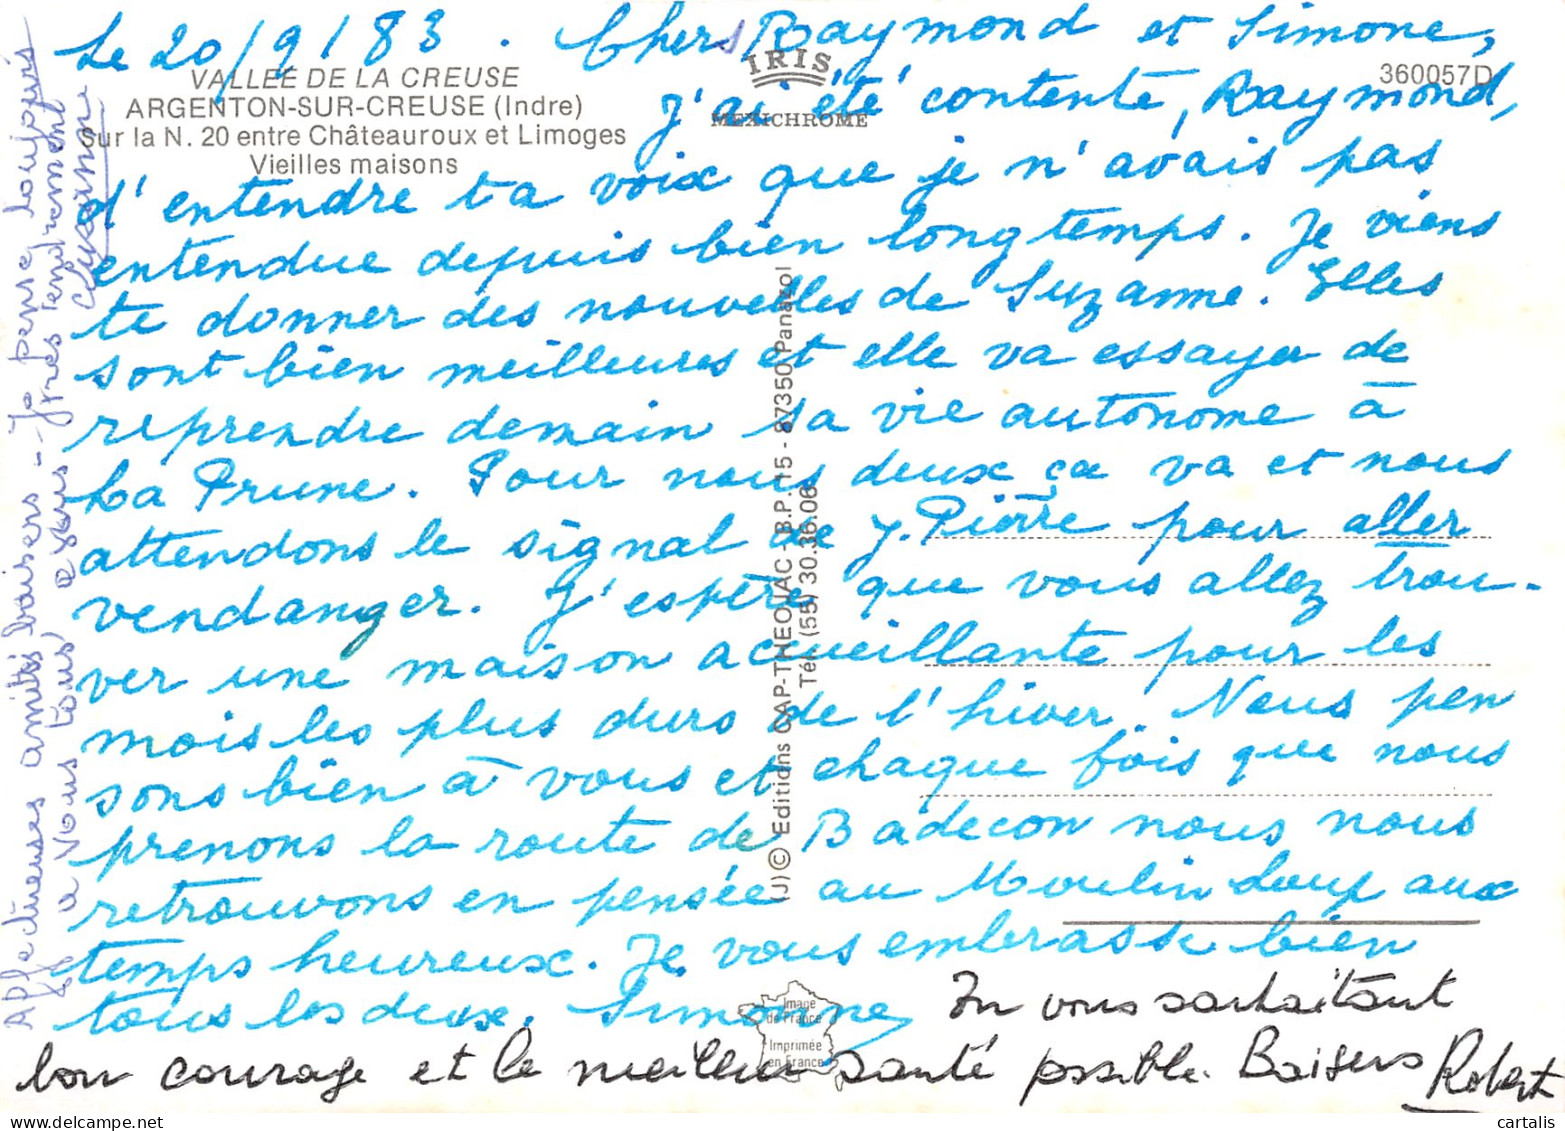 Le 20/9/83. Chers Raymond et Simone,
VALLÉE DE LA CREUSE
ARGENTON-SUR-CREUSE (Indre)
Sur la N. 20 entre Châteauroux et Limoges
Vieilles maisons
IRIS
MEXICHROME
360057D
J'ai été contente, Raymond,
d'entendre ta voix que je n'avais pas
entendue depuis bien longtemps. Je viens
te donner des nouvelles de Suzanne. Elles
sont bien meilleures et elle va essayer de
reprendre demain sa vie autonome à
La Prune. Pour nous deux ça va et nous
attendons le signal de J. Pierre pour aller
vendanger. J'espère que vous allez trou-
ver une maison accueillante pour les
mois les plus durs de l'hiver. Nous pen
sons bien à vous et chaque fois que nous
prenons la route de Badecon nous nous
retrouvons en pensée au Moulin Loup aux
temps heureux. Je vous embrasse bien
tous les deux. Simonne
En vous souhaitant
bon courage et la meilleure santé possible. Baisers Robert
(J) © Editions CAP-THEOJAC - B.P. 15 - 87350 Panazol
Tél. (55) 30.36.06
Image
de France
Imprimée
en France
Affectueuses amitiés baisers - Je pense toujours
à vous tous, à vous très tendrement
Suzanne